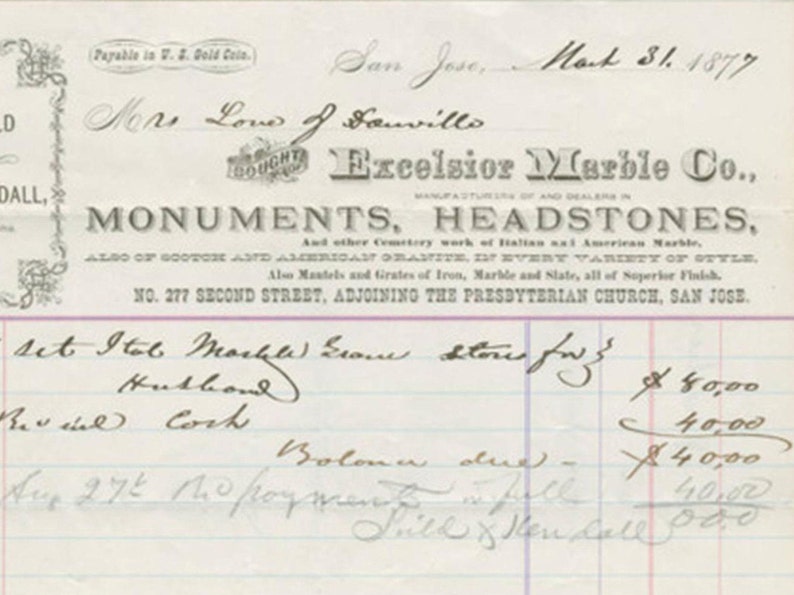 Payable in U. S. Gold Coin.
San Jose, March 31. 1877
Mrs Love of Danville
LD
DALL,
BOUGHT
Excelsior Marble Co.,
MANUFACTURERS OF AND DEALERS IN
MONUMENTS, HEADSTONES,
And other Cemetery work of Italian and American Marble.
ALSO OF SCOTCH AND AMERICAN GRANITE, IN EVERY VARIETY OF STYLE.
Also Mantels and Grates of Iron, Marble and Slate, all of Superior Finish.
NO. 277 SECOND STREET, ADJOINING THE PRESBYTERIAN CHURCH, SAN JOSE.
set Ital Marble Grave stone for
Husband $ 80,00
Received Cash 40,00
Balance due - $ 40,00
Aug 27t payment in full 40,00
& Kendall 00.0